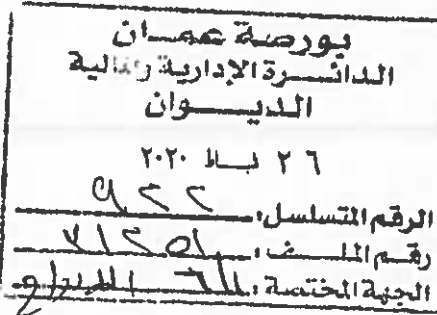 بورصة عمان
الدائرة الإدارية والمالية
الديوان
٢٦ شباط ٢٠٢٠
الرقم المتسلسل: ٩٢٢
رقم الملف: ٧١٢٥١
الجهة المختصة: